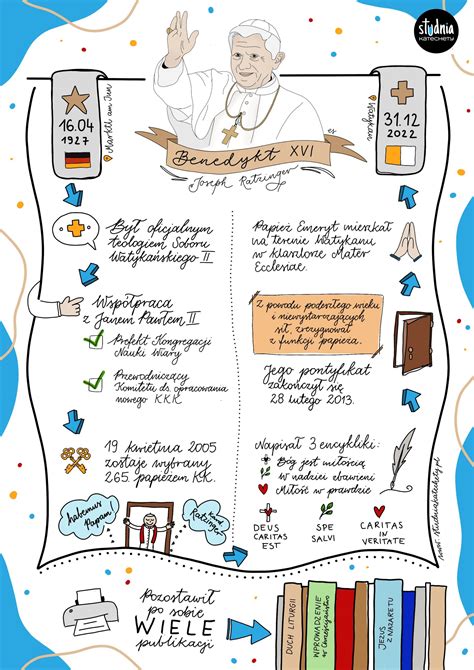 studnia
KATECHETY
16.04
1927
Marktl am Inn
31.12
2022
Watykan
Benedykt XVI
Joseph Ratzinger
es
Był oficjalnym
teologiem Soboru
Watykańskiego II
Współpraca
z Janem Pawłem II
Prefekt Kongregacji
Nauki Wiary
Przewodniczący
Komitetu ds. opracowania
nowego K.K.K.
19 kwietnia 2005
zostaje wybrany
265. papieżem K.K.
habemus
Papam!
Kard.
Ratzinger
Papież Emeryt mieszkał
na terenie Watykanu
w klasztorze Mater
Ecclesiae.
Z powodu podeszłego wieku
i niewystarczających
sił, zrezygnował
z funkcji papieża.
Jego pontyfikat
zakończył się
28 lutego 2013.
Napisał 3 encykliki:
Bóg jest miłością
w nadziei zbawieni
Miłość w prawdzie
DEUS
CARITAS
EST
SPE
SALVI
CARITAS
IN
VERITATE
www.studniakatechety.pl
Pozostawił
po sobie
WIELE
publikacji
DUCH LITURGII
WPROWADZENIE
w Chrześcijaństwo
JEZUS
Z NAZARETU